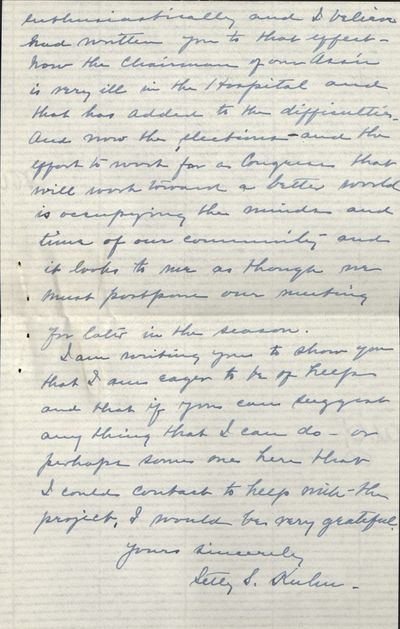 enthusiastically and I believe
had written you to that effect -
Now the Chairman of our Ass'n
is very ill in the Hospital and
that has added to the difficulties.
And now the elections - and the
effort to work for a Congress that
will work toward a better world
is occupying the minds and
time of our community and
it looks to me as though we
must postpone our meeting
for later in the season.
I am writing you to show you
that I am eager to be of help
and that if you can suggest
any thing that I can do - or
perhaps some one here that
I could contact to help with the
project, I would be very grateful.
Yours sincerely
S. Kuhn -